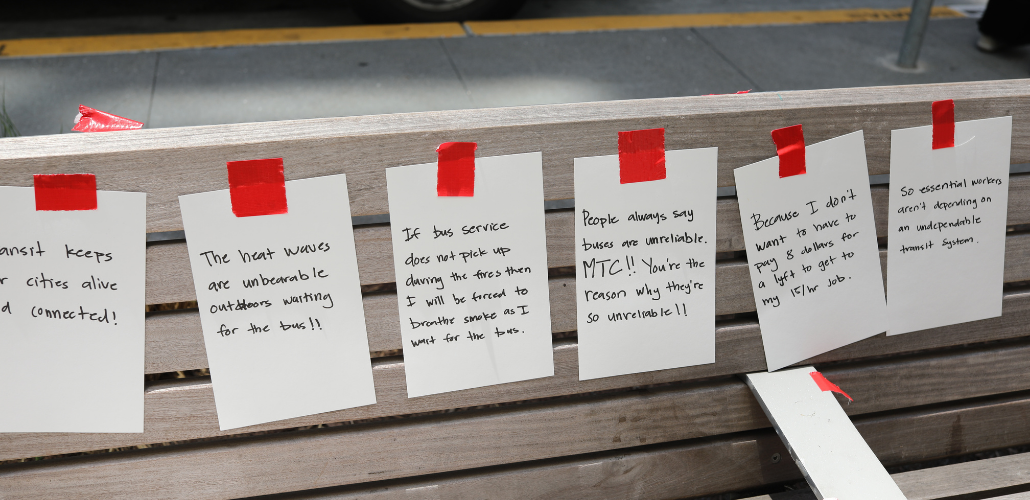 ansit keeps
r cities alive
d connected!
The heat waves
are unbearable
outdoors waiting
for the bus!!
If bus service
does not pick up
during the fires then
I will be forced to
breathe smoke as I
wait for the bus.
People always say
buses are unreliable.
MTC!! You're the
reason why they're
so unreliable!!
Because I don't
want to have to
pay 8 dollars for
a lyft to get to
my 15/hr job.
So essential workers
aren't depending on
an undependable
transit system.